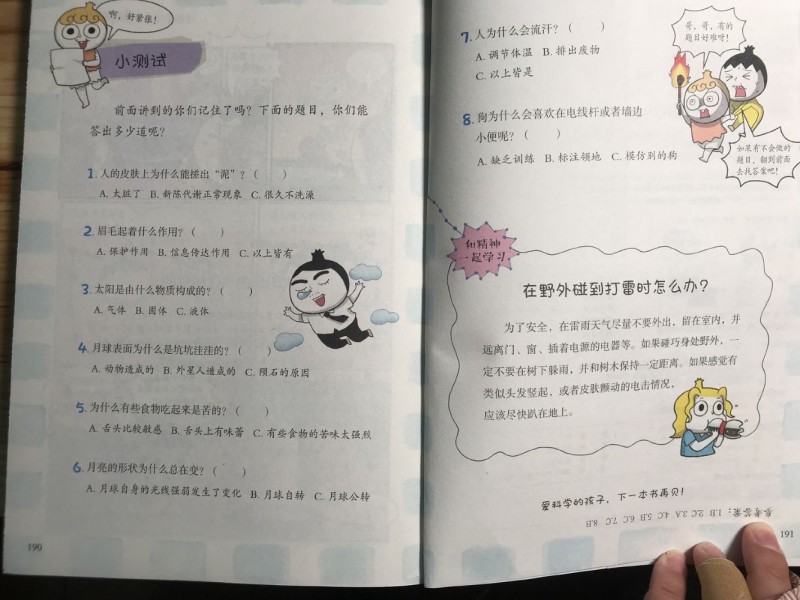 啊，好紧张！
小测试
前面讲到的你们记住了吗？下面的题目，你们能
答出多少道呢？
1.人的皮肤上为什么能搓出“泥”？（ ）
A. 太脏了 B. 新陈代谢正常现象 C. 很久不洗澡
2.眉毛起着什么作用？（ ）
A. 保护作用 B. 信息传达作用 C. 以上皆有
3.太阳是由什么物质构成的？（ ）
A. 气体 B. 固体 C. 液体
4.月球表面为什么是坑坑洼洼的？（ ）
A. 动物造成的 B. 外星人造成的 C. 陨石的原因
5.为什么有些食物吃起来是苦的？（ ）
A. 舌头比较敏感 B. 舌头上有味蕾 C. 有些食物的苦味太强烈
6.月亮的形状为什么总在变？（ ）
A. 月球自身的光线强弱发生了变化 B. 月球自转 C. 月球公转
190
7.人为什么会流汗？（ ）
A. 调节体温 B. 排出废物
C. 以上皆是
哥，哥，有的
题目好难呀！
8.狗为什么会喜欢在电线杆或者墙边
小便呢？（ ）
A. 缺乏训练 B. 标注领地 C. 模仿别的狗
如果有不会做的
题目，翻到前面
去找答案吧！
和精神
一起学习
在野外碰到打雷时怎么办？
为了安全，在雷雨天气尽量不要外出，留在室内，并
远离门、窗、插着电源的电器等。如果碰巧身处野外，一
定不要在树下躲雨，并和树木保持一定距离。如果感觉有
类似头发竖起，或者皮肤颤动的电击情况，
应该尽快趴在地上。
爱科学的孩子，下一本书再见！
参考答案：1.B 2.C 3.A 4.C 5.B 6.C 7.C 8.B
191